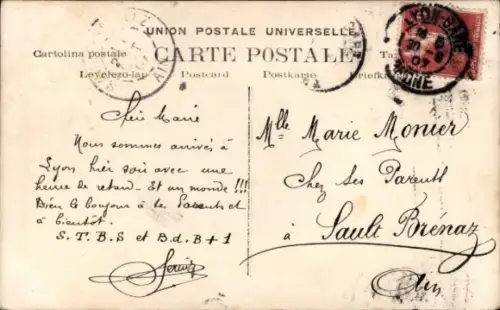 UNION POSTALE UNIVERSELLE
Cartolina postale
CARTE POSTALE
Levelezo-lap
Postcard
Postkarte
Briefk
LYON-GARE
RHONE
Chère Marie
Nous sommes arrivés à
Lyon hier soir avec une
heure de retard - Et un monde !!!
Bien le bonjour à tes Parents et
à bientôt.
S. T. B. S et B. d. B + 1
Mlle Marie Monier
Chez Ses Parents
à Sault Brénaz
Ain